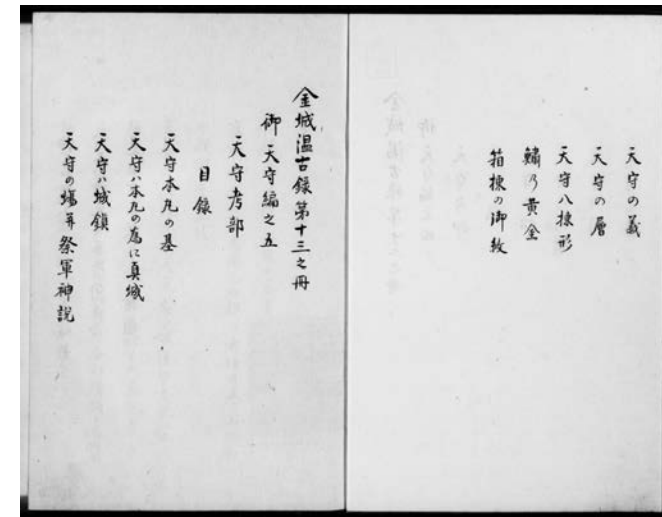 天守の義
天守の層
天守八棟形
鱐乃黄金
箱棟の御紋
金城温古録第十三之冊
御天守編之五
天守考部
目録
天守本丸の基
天守ハ本丸の為に真城
天守ハ城鎮
天守の傷并祭軍神説